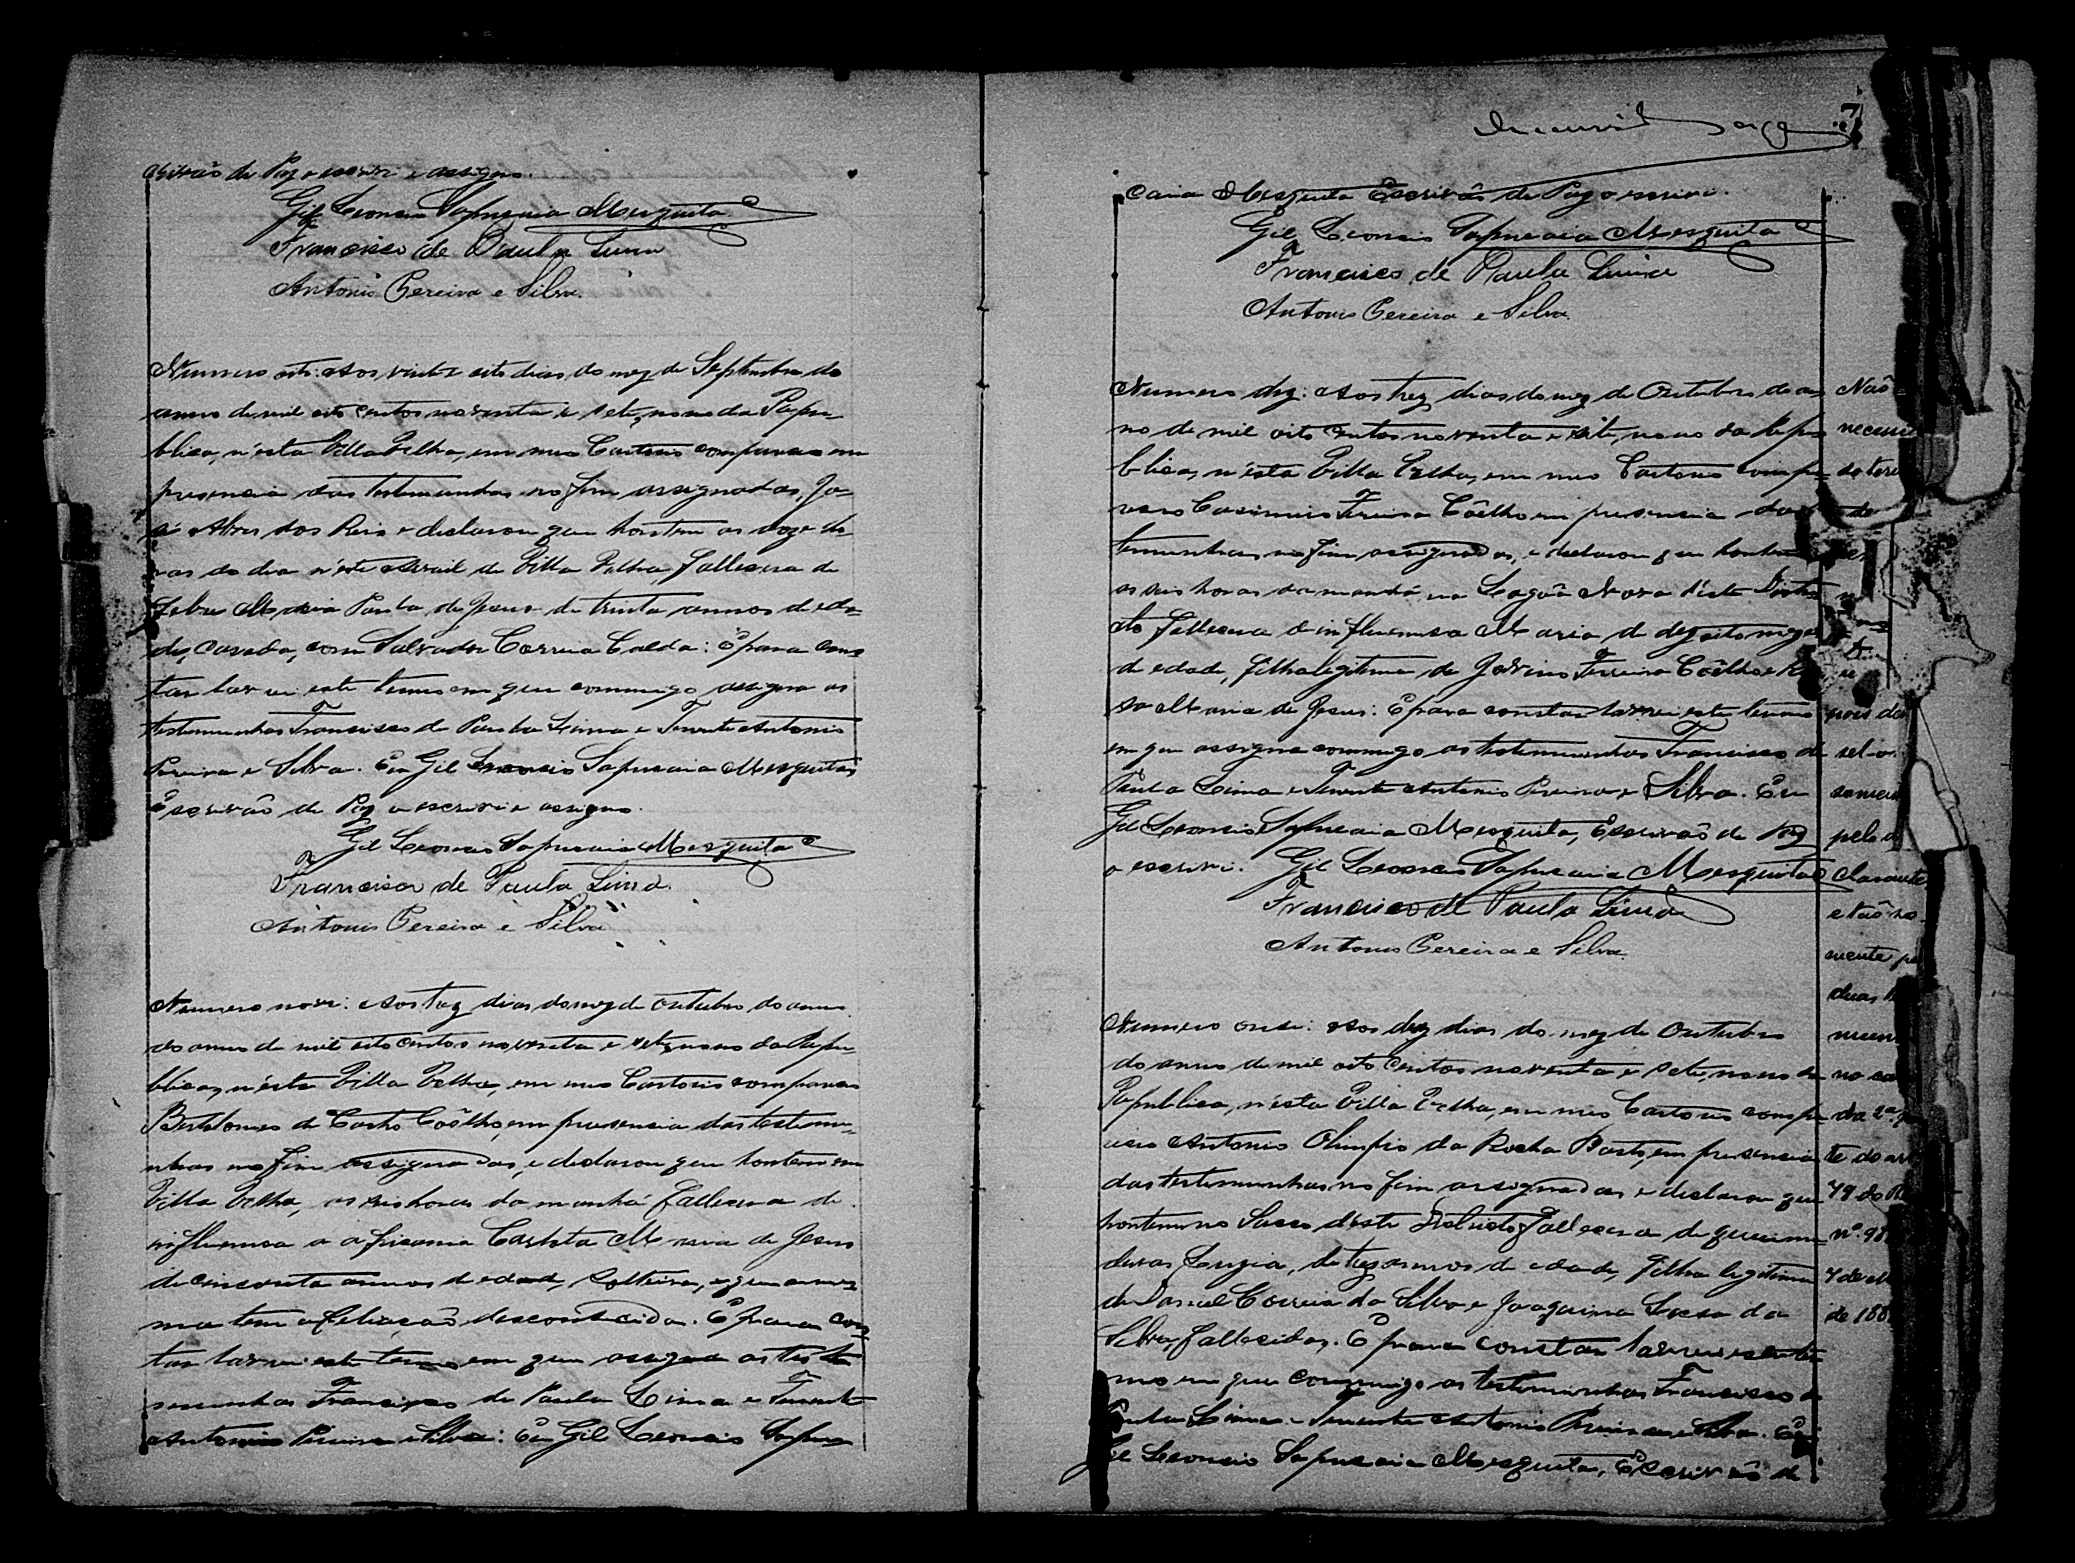 crivão de Paz o escrivi e assigno.
Gil Leoncio Sapucaia Mesquita
Francisco de Paula Lima
Antonio Pereira e Silva.
Numero oito: Aos vinte e oito dias do mez de Septembro do
anno de mil oito centos noventa e sete, nono da Repu-
blica, n'esta Villa Velha, em meu Cartorio compareceo em
presencia das testemunhas no fim assignadas, Jo-
sé Alves dos Reis e declarou que hontem as doze ho-
ras do dia n'este Arraial de Villa Velha, fallecera de
febre Maria Paula de Jesus de trinta annos de eda-
de, casada, com Salvador Correia Calda: E para cons
tar lavrei este termo em que commigo assigna as
testemunhas Francisco de Paula Lima e Tenente Antonio
Pereira e Silva. Eu Gil Leoncio Sapucaia Mesquita,
Escrivão de Paz o escrivi e assigno.
Gil Leoncio Sapucaia Mesquita
Francisco de Paula Lima.
Antonio Pereira e Silva
Numero nove: Aos trez dias do mez de Outubro do anno
do anno de mil oito centos noventa e sete, nono da Repu-
blica, n'esta Villa Velha, em meu Cartorio compareceo
Bertolomeo de Coelho, em presencia das testemu-
nhas no fim assignadas, e declarou que hontem em
Villa Velha, as seis horas da manhã fallecera de
influensa a africana Maria de Jesus
de cincoenta annos de edade, solteira, e que a mes
ma tem a filiação desconhecida. E para cons
tar lavrei este termo em que assigna as teste
munhas Francisco de Paula Lima e Tenente
Antonio Pereira e Silva: Eu Gil Leoncio Sapu
7
caia Mesquita Escrivão de Paz o escrivi.
Gil Leoncio Sapucaia Mesquita
Francisco de Paula Lima
Antonio Pereira e Silva
Numero dez: Aos trez dias do mez de Outubro do an
no de mil oito centos noventa e sete, nono da Repu
blica, n'esta Villa Velha, em meu Cartorio compa-
receo Casimiro Ferreira Coêlho em presencia das
temunhas no fim assignadas, e declarou que hontem
as seis horas da manhã, na Lagôa Nova d'este Distri
cto fallecera de influensa Maria de dezoito mezes
de edade, filha legitima de Jovino Ferreira Coêlho e
Maria de Jesus: E para constar lavrei este termo
em que assigna commigo as testemunhas Francisco de
Paula Lima e Tenente Antonio Pereira e Silva. Eu
Gil Leoncio Sapucaia Mesquita, Escrivão de Paz
o escrivi. Gil Leoncio Sapucaia Mesquita
Francisco de Paula Lima
Antonio Pereira e Silva.
Numero onse: Aos dez dias do mez de Outubro
do anno de mil oito centos noventa e sete, nono da
Republica, n'esta Villa Velha, em meu Cartorio compa
receo Antonio Olimpio da Rocha Basto, em presencia
das testemunhas no fim assignadas e declarou que
hontem no Sacco d'este Districto fallecera de queima
duras Luzia, de trez annos de edade, filha legitima
de Daniel Correia da Silva e Joaquina da
Silva, fallecidos. E para constar lavrei este ter
mo em que commigo as testemunhas Francisco de
Paula Lima e Tenente Antonio Pereira e Silva. Eu
Gil Leoncio Sapucaia Mesquita, Escrivão de
Não
pois do
sel-o
pelo
e tão so
mente
duas
no
da 2ª
te do
79 do
nº. 98
7 de
de 188